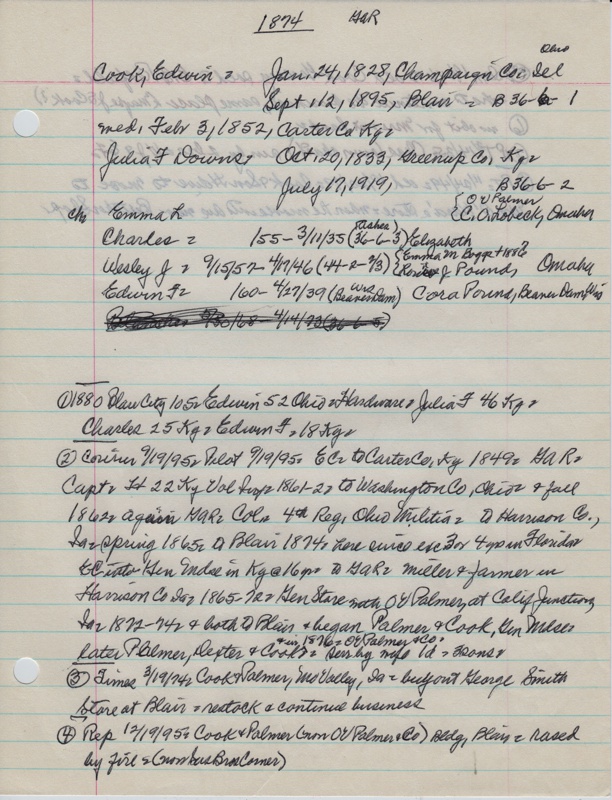 1874 GAR
Ohio
Cook, Edwin = Jan. 24, 1828, Champaign Co. Del
Sept. 12, 1895, Blair = B 36-6-1
md, Feb 3, 1852, Carter Co Ky=
Julia F Downs, Oct. 20, 1833, Greenup Co, Ky=
July 17, 1919, B36-6-2
ch= Emma L {OV Palmer
{C. Omobeck, Omaha
Charles = 155-3/11/35 (Ashes 36-6-3) Elizabeth
Wesley J = 9/15/57-4/17/46 (44-2-2/3) {Emma M. Boggs + 1886?
J Pound, Omaha
Edwin F= 160-4/27/39 (Wis Beaver Dam) Cora Pound, Beaver Dam, Wis
① 1880 Blair City 105= Edwin 52 Ohio= Hardware= Julia F 46 Ky=
Charles 25 Ky= Edwin F=18 Ky=
② Courier 9/19/95= Pilot 9/19/95= EC= to Carter Co, Ky 1849= GAR=
Capt= 22 Ky Vol Inf= 1861-2= to Washington Co, Ohio= & fall
1862= again GAR= Col= 4th Reg, Ohio Militia= to Harrison Co.,
Ia= spring 1865= to Blair 1874= here since exc 3 or 4 yrs in Florida=
EC into Gen Mdse in Ky @ 16 yr= to GAR= miller & farmer in
Harrison Co Ia= 1865-72= Gen Store with OV Palmer, at Calif Junction,
Ia= 1872-74= & both to Blair & began Palmer & Cook, Gen Mdse=
& in 1876= OV Palmer & Co.
later Palmer, Dexter & Cook= Serv by wife 1d = 3sons=
③ Times 3/19/74= Cook & Palmer, Mo Valley, Ia= buy out George Smith
store at Blair = restock & continue business
④ Rep 12/19/95= Cook & Palmer (now OV Palmer & Co) Bldg, Blair= rased
by fire = (now bus Bros Corner)